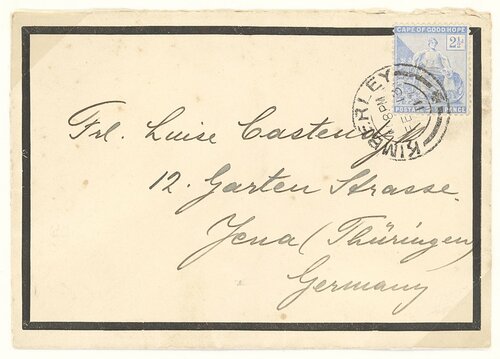 CAPE OF GOOD HOPE
2½
POSTA
ENCE
KIMBERLEY
8 PM
Frl. Luise Castendyk
12. Garten Strasse.
Jena (Thüringen)
Germany